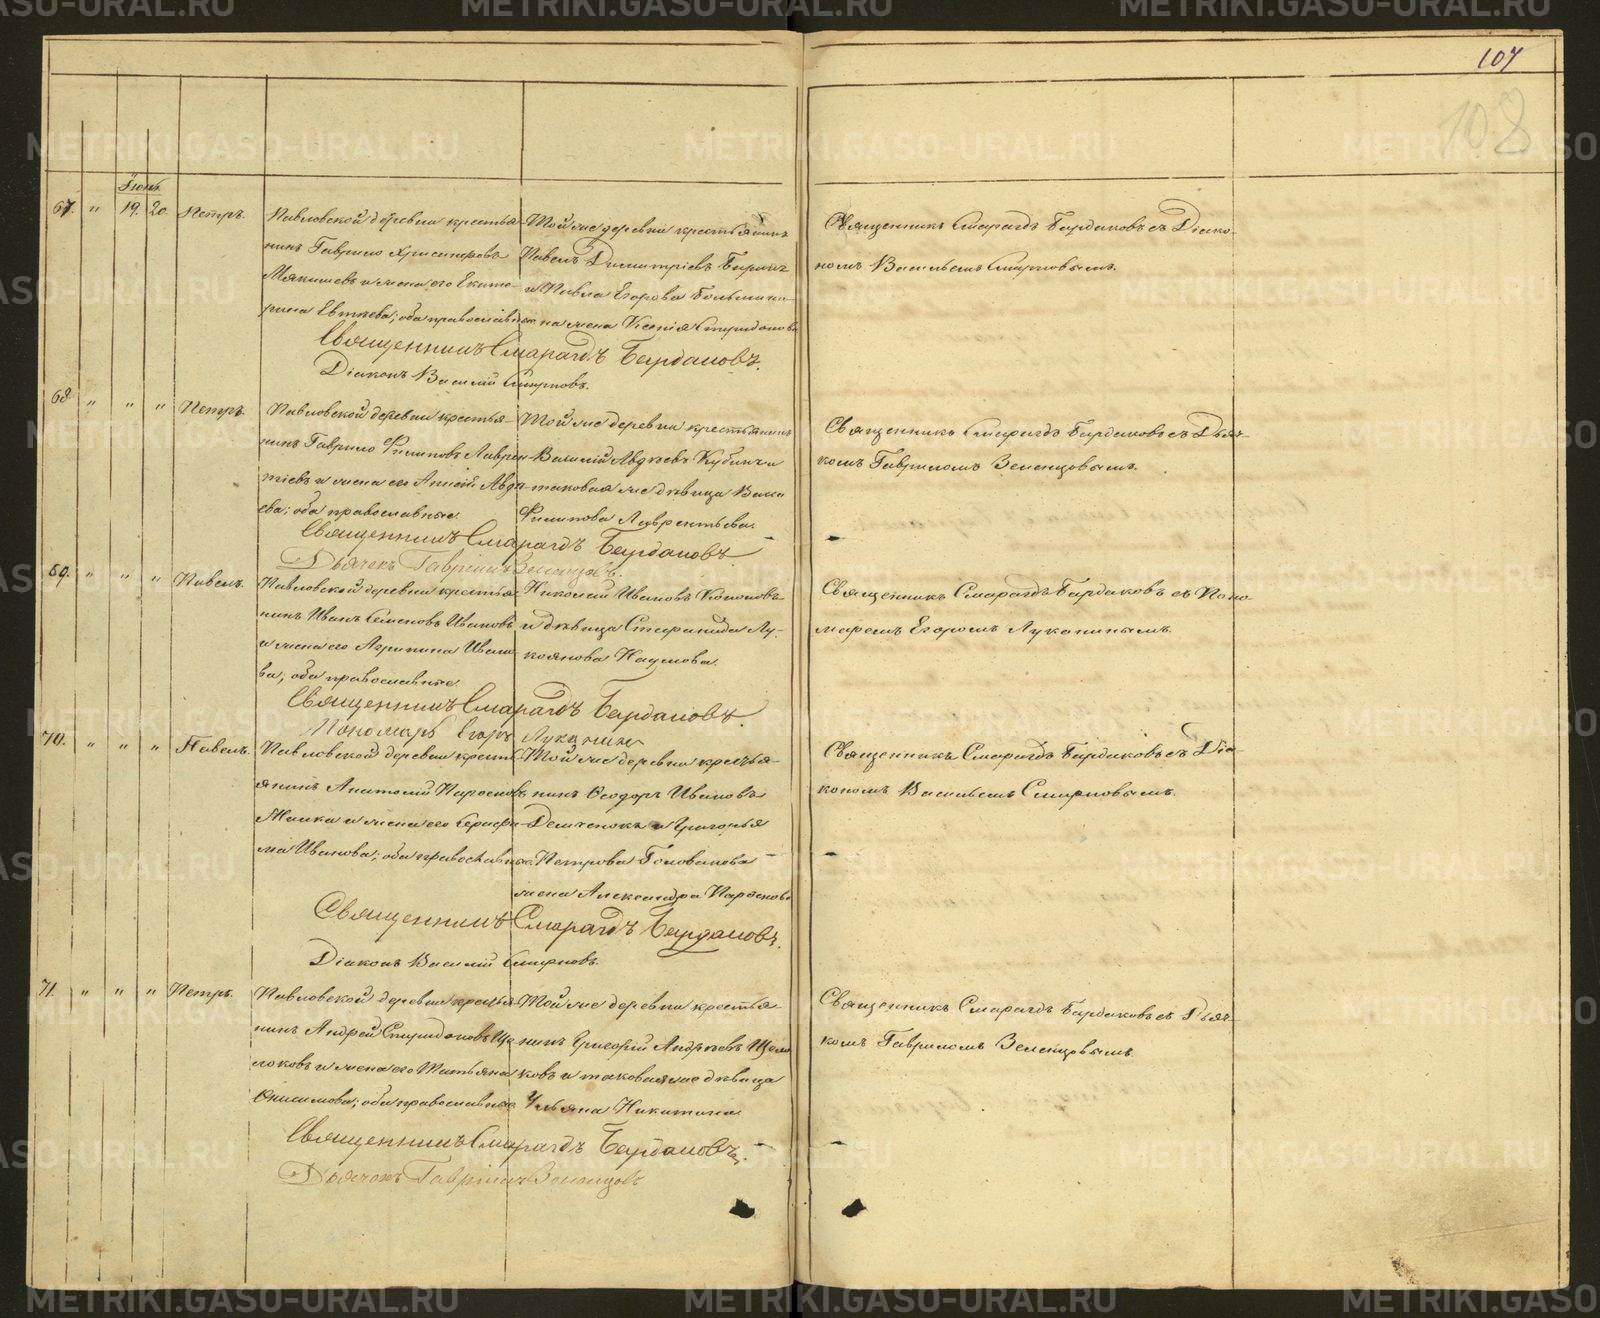 107
108
Іюнь.
67. " 19. 20. Петръ.
Павловской деревни крестья-
нинъ Гаврило Хрисанфовъ
Мякишевъ и жена его Екате-
рина Евтиева; оба православные
Той же деревни крестьянинъ
Павелъ Димитріевъ
и Павла Егорова
на жена Ксенія Спиридонова
Священникъ Смарагдъ Бардаковъ.
Діаконъ Василій Смирновъ.
Священникъ Смарагдъ Бардаковъ съ Діако-
номъ Васильемъ Смирновымъ.
68 " " " Петръ.
Павловской деревни крестья-
нинъ Гаврило Филиповъ Лаврен-
тіевъ и жена его Авде-
ева; оба православные.
Той же деревни крестьянинъ
Василій Авдѣевъ Кубинъ и
таковая же дѣвица Васса
Филипова Лаврентьева.
Священникъ Смарагдъ Бардаковъ
Дьячекъ Гавріилъ Зеленцовъ.
Священникъ Смарагдъ Бардаковъ съ Дьяч-
комъ Гавриломъ Зеленцовымъ.
69. " " " Павелъ.
Павловской деревни крестья-
нинъ Иванъ Семеновъ Ивановъ
и жена его Агрипина Ивано-
ва; оба православные
Николай Ивановъ Кононовъ
и дѣвица Стефанида Лу-
коянова Наумова.
Священникъ Смарагдъ Бардаковъ.
Пономарь Егоръ Луканинъ
Священникъ Смарагдъ Бардаковъ съ Поно-
маремъ Егоромъ Луканинымъ.
70. " " " Павелъ.
Павловской деревни кресть-
янинъ Анатолій
и жена его Серафи-
ма Иванова; оба православные.
Той же деревни крестья-
нинъ Ѳеодоръ Ивановъ
и Григорья
Петрова Голованова
жена Александра
Священникъ Смарагдъ Бардаковъ.
Діаконъ Василій Смирновъ.
Священникъ Смарагдъ Бардаковъ съ Діа-
кономъ Васильемъ Смирновымъ.
71. " " " Петръ.
Павловской деревни крестья-
нинъ Андрей Спиридоновъ Ще-
локовъ и жена его Татьяна
Онисимова; оба православные
Той же деревни крестья-
нинъ Григорій Андреевъ Щело-
ковъ и таковая же дѣвица
Ульяна Никитина
Священникъ Смарагдъ Бардаковъ.
Дьячокъ Гавріилъ Зеленцовъ
Священникъ Смарагдъ Бардаковъ съ Дьяч-
комъ Гавриломъ Зеленцовымъ.
METRIKI.GASO-URAL.RU